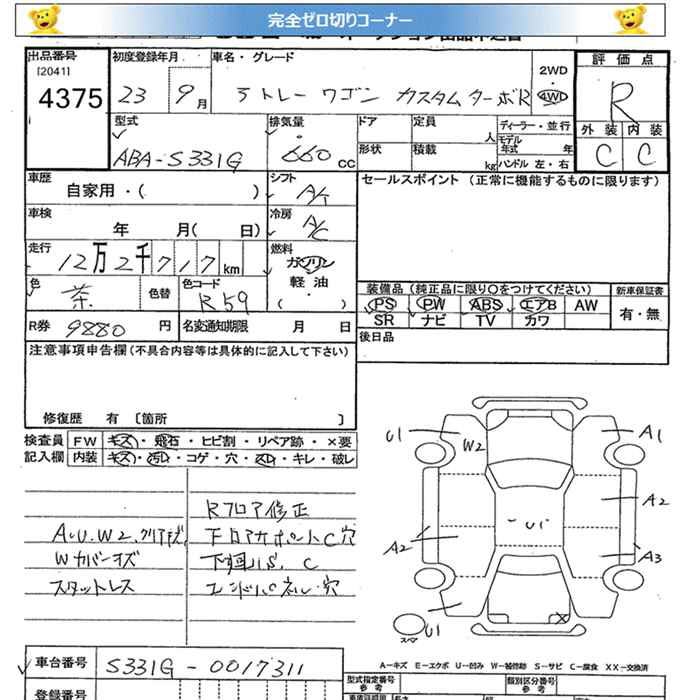 完全ゼロ切りコーナー
出品番号 初度登録年月 車名・グレード 2WD・4WD 評価点
[2041]
4375 23年 9月 アトレー ワゴン カスタムターボR R
型式 ABA-S331G 排気量 660 CC ドア 定員 人 ディーラー・並行 外装 内装
形状 積載 kg モデル年式 年 ハンドル 左・右 C C
車歴 自家用・( ) シフト A/T セールスポイント (正常に機能するものに限ります)
車検 年 月( 日) 冷房 A/C
走行 12万2千717km 燃料 ガソリン 軽油 ・( )
色 茶 色替 色コード R59
装備品 (純正品に限り○をつけてください) 新車保証書
PS PW ABS エアB AW 有・無
SR ナビ TV カワ
R券 9880円 名変通知期限 月 日 後日品
注意事項申告欄 (不具合内容等は具体的に記入して下さい)
修復歴 有 〔箇所 〕
検査員 FW キズ・飛石・ヒビ割・リペア跡・×要
記入欄 内装 キズ・汚レ・コゲ・穴・スレ・キレ・破レ
Rフロア修正
A・U.W2.クリアキズ 下回リサポートC穴
Wカバーキズ 下廻りS.C
スタットレス エンドパネル・穴
U1 W2 A1
A2
A2 U1 A3
U1 X
スペア
車台番号 S331G-0017311
A-キズ E-エクボ U-凹み W-補修跡 S-サビ C-腐食 XX-交換済
登録番号 型式指定番号 参考 類別区分番号 参考